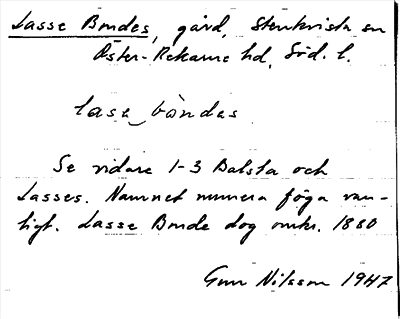 Lasse Bondes, gård, Stenkvista sn
Öster-Rekarne hd, Söd. l.
lase bòndas
Se vidare 1-3 Balsta och
Lasses. Namnet numera föga van-
ligt. Lasse Bonde dog omkr. 1860
Gun Nilsson 1947